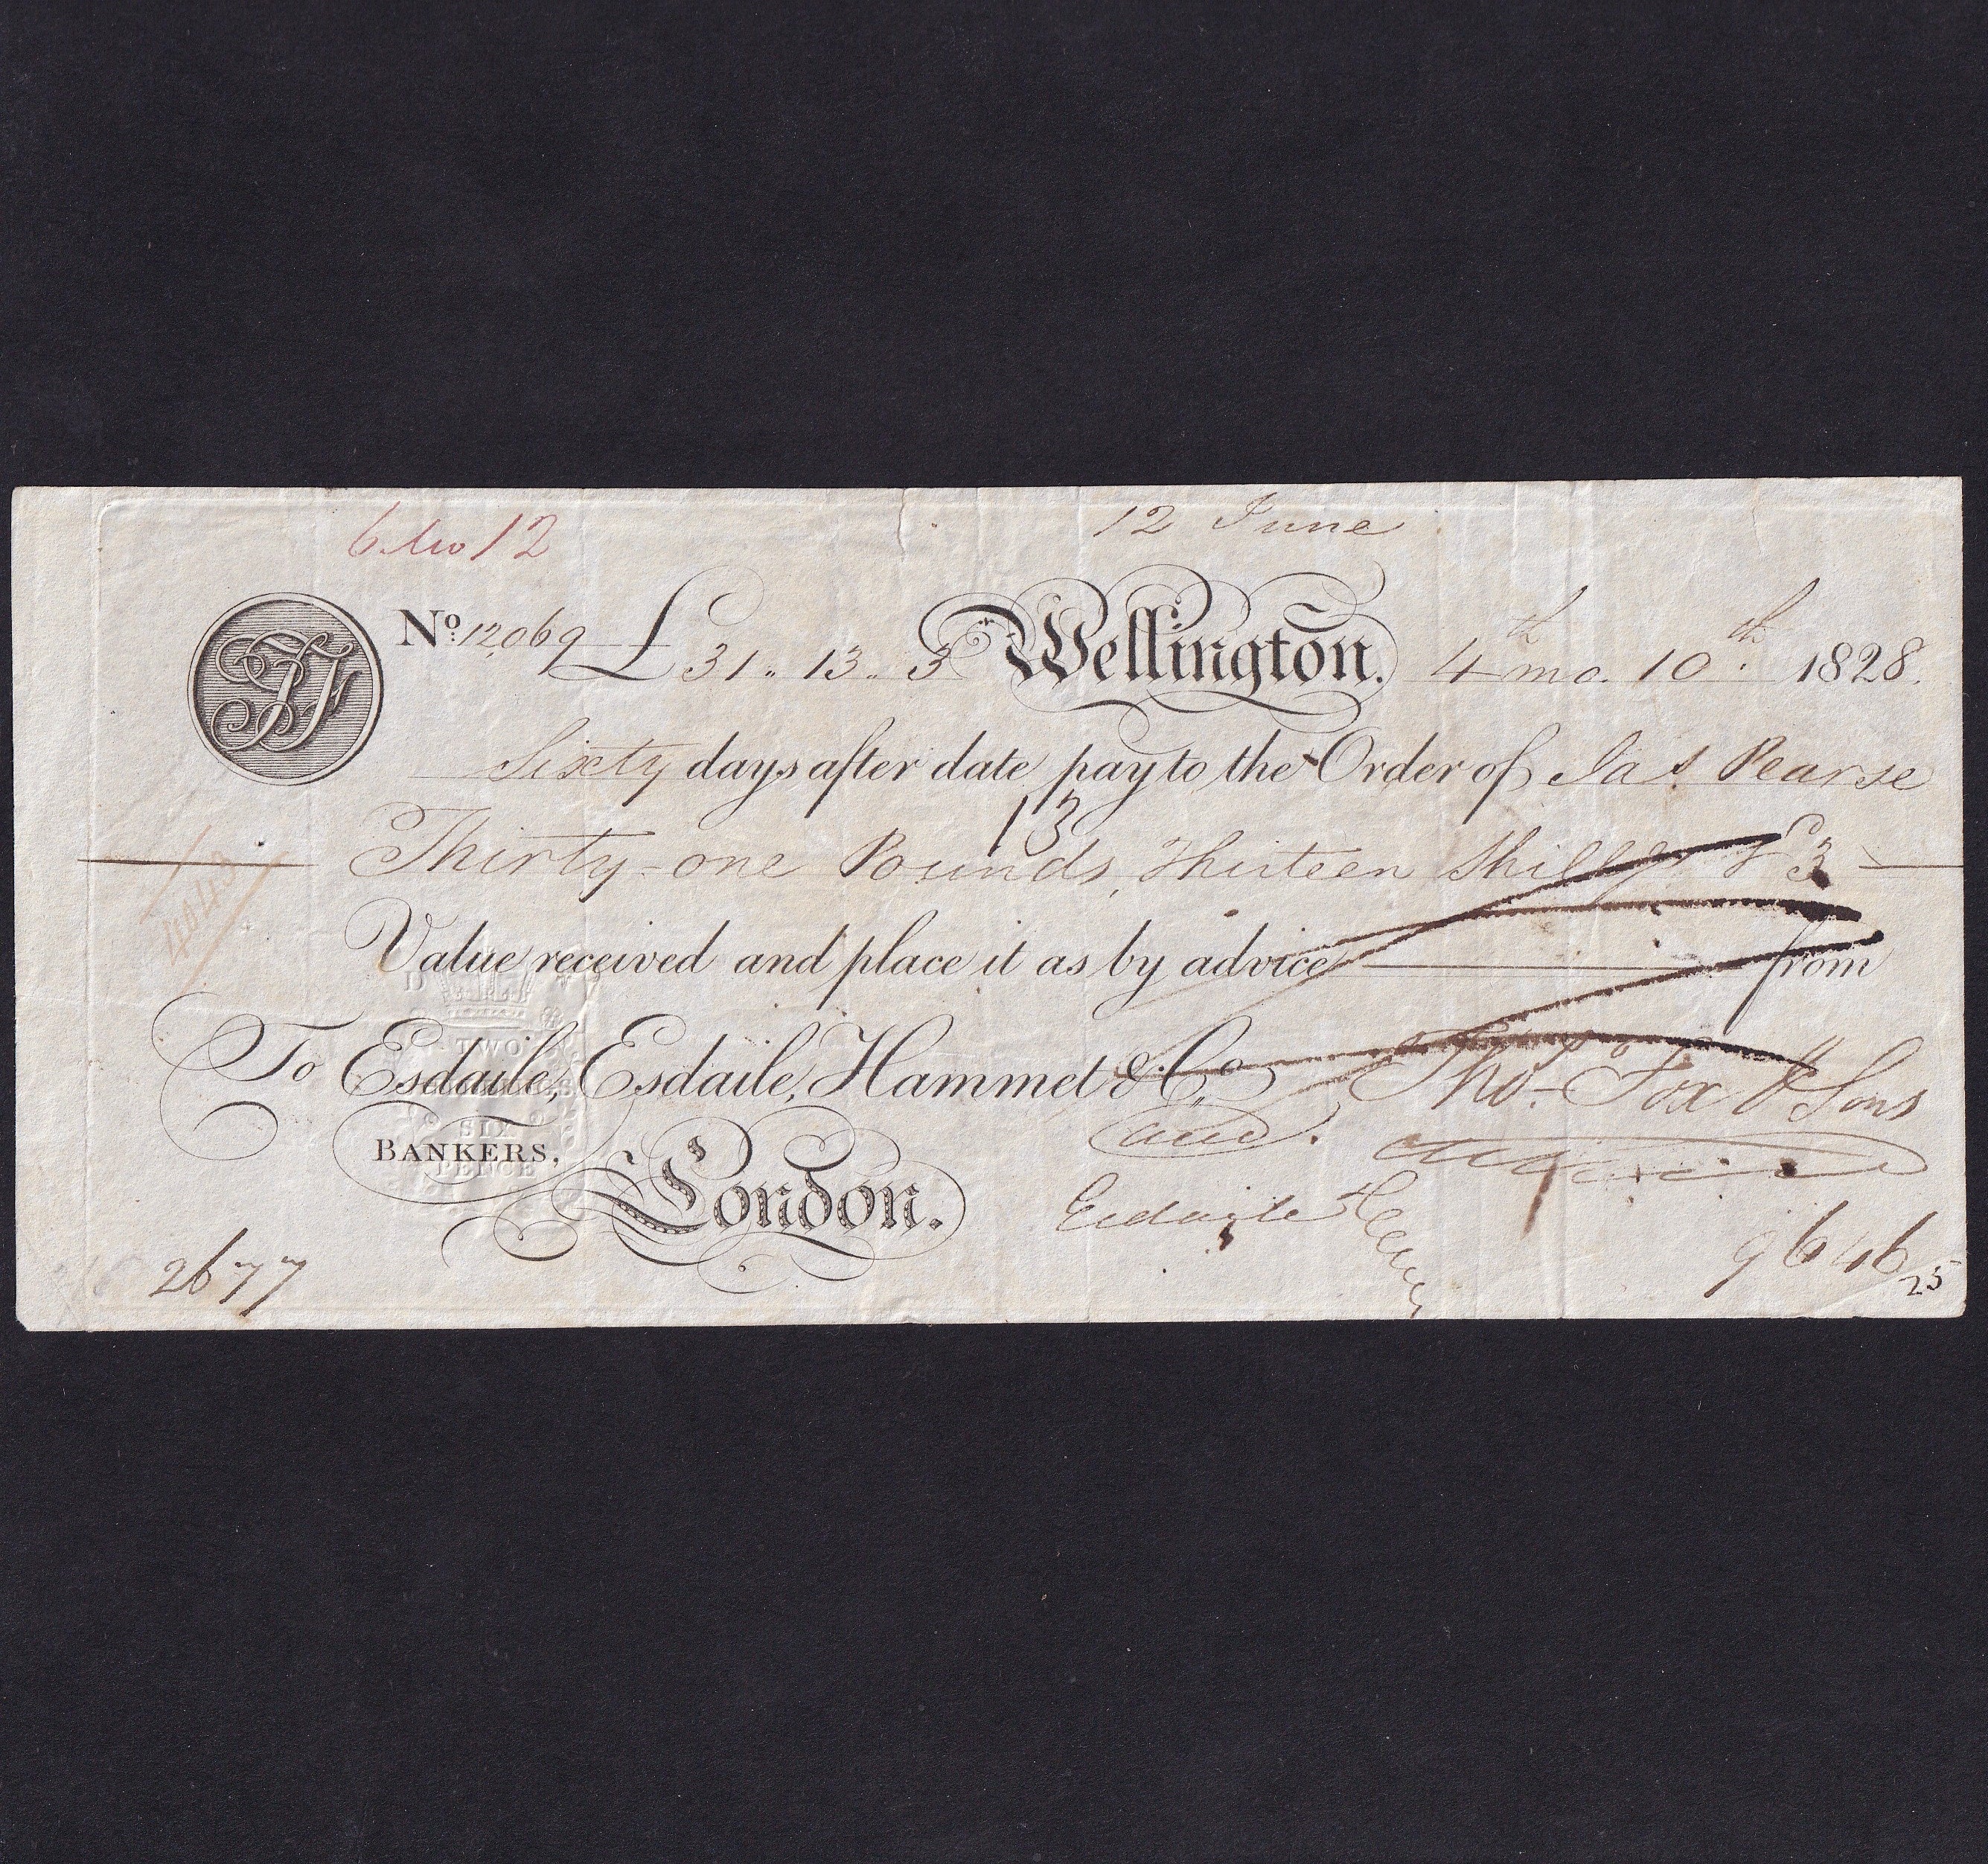 6 Mo 12
12 June
TF
No. 12,069 £ 31 .. 13 .. 3 Wellington. 4th mo. 10th. 1828.
Sixty days after date pay to the Order of Jas Pearse
13
Thirty-one Pounds, Thirteen Shillgs & 3
Value received and place it as by advice from
4043
TWO
SIX
PENCE
To Esdaile, Esdaile, Hammet & Co. Thos. Fox & Sons
BANKERS,
London.
Esdaile
2677
9646
25